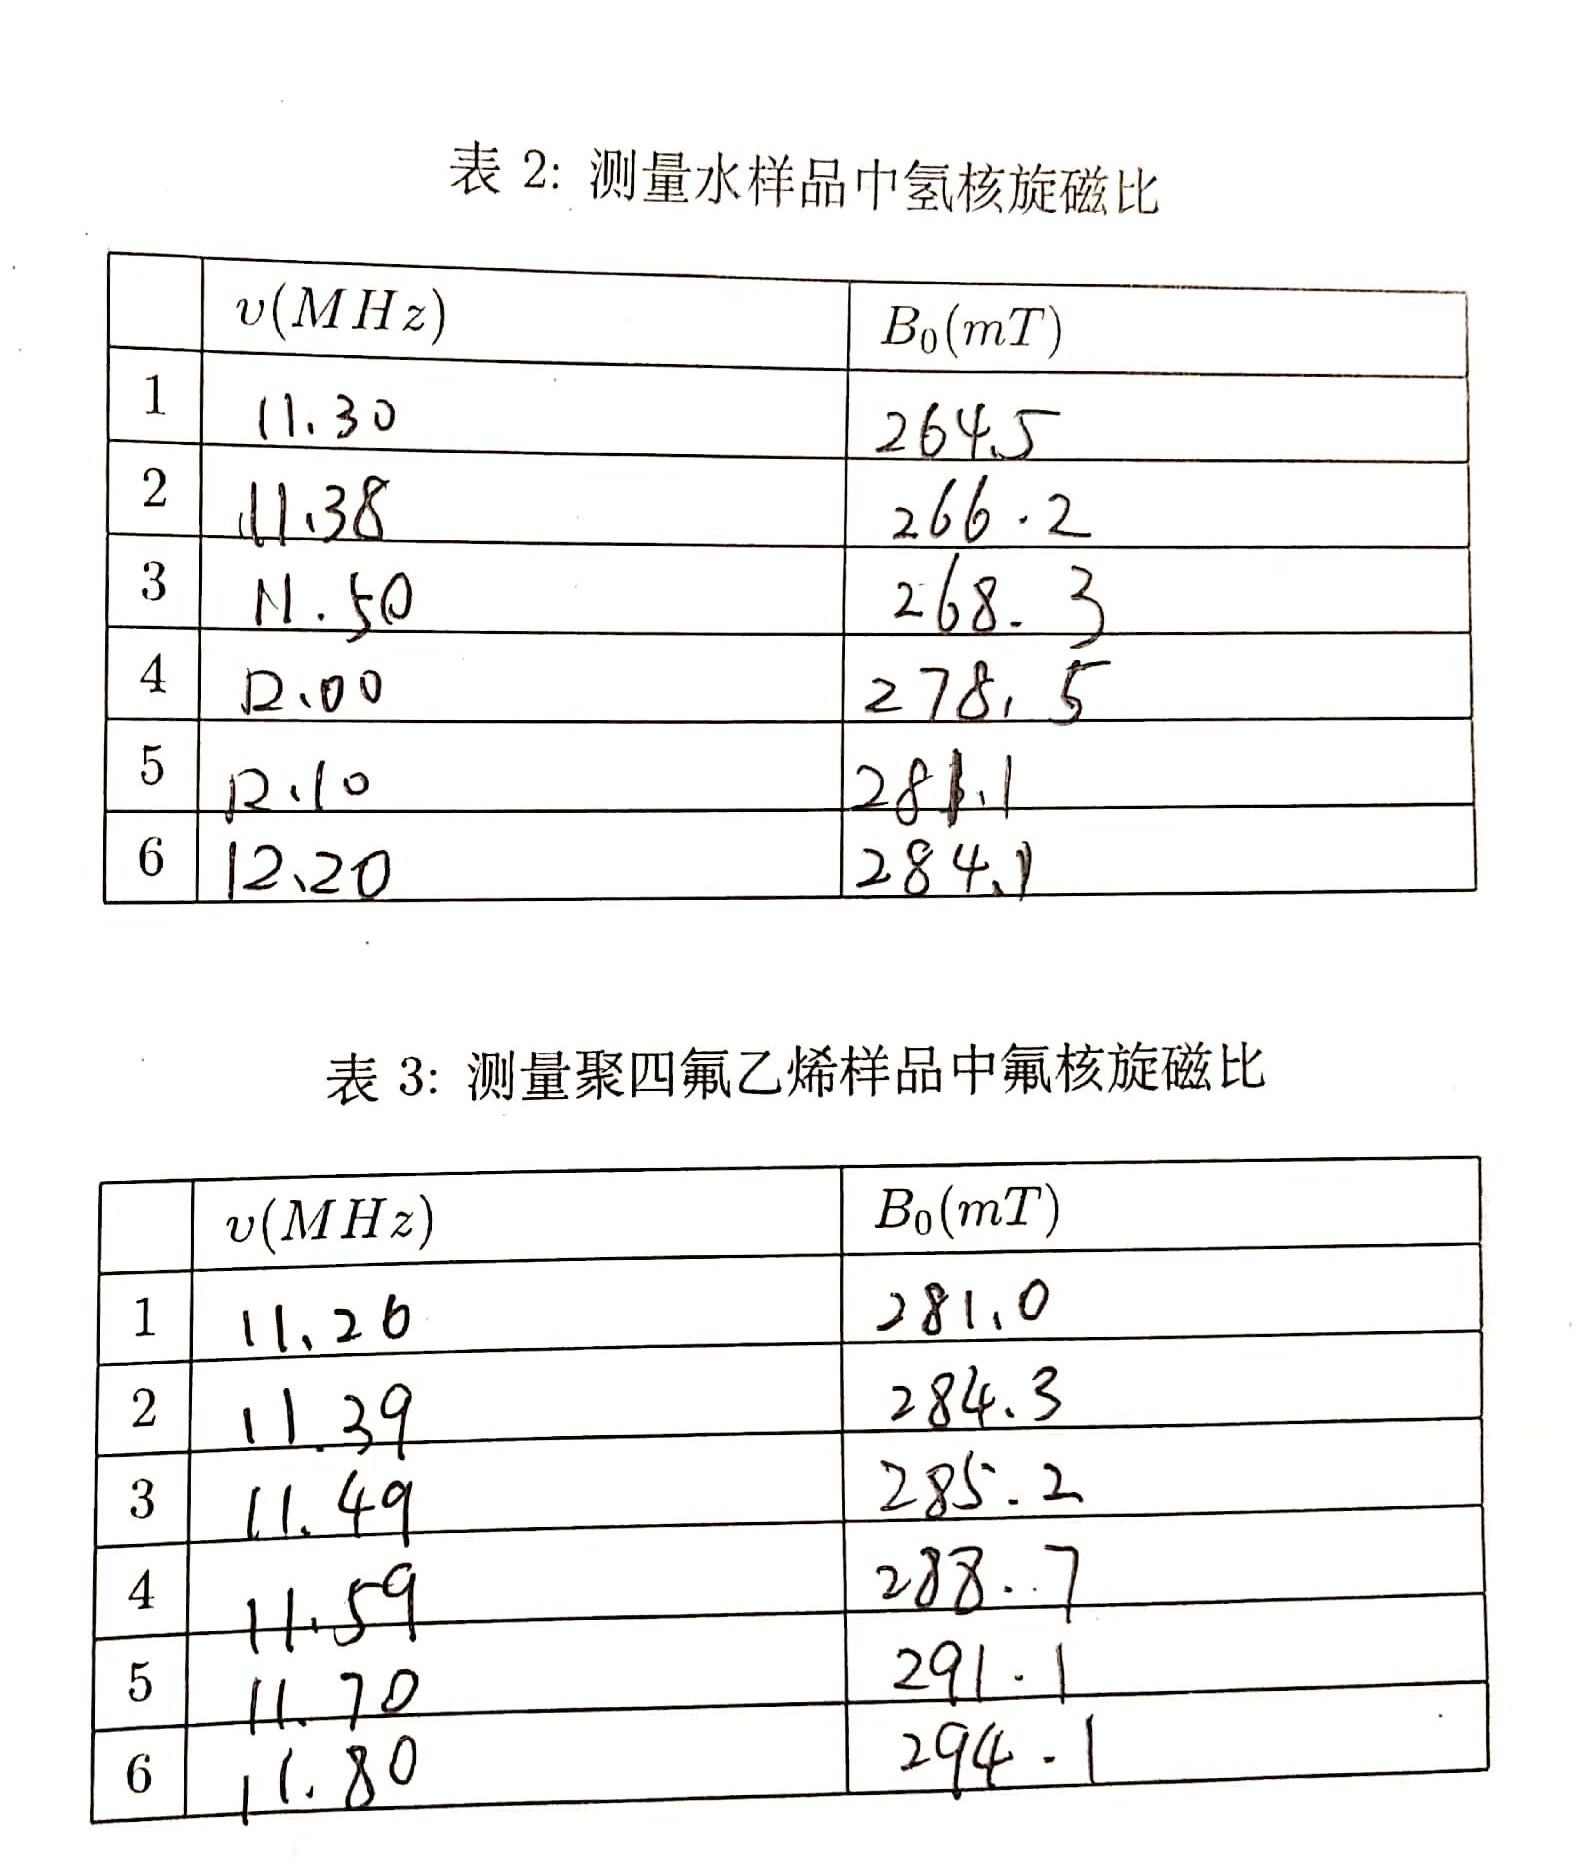 表 2: 测量水样品中氢核旋磁比
υ(MHz) B₀(mT)
1 11.30 264.5
2 11.38 266.2
3 11.50 268.3
4 12.00 278.5
5 12.10 281.1
6 12.20 284.1
表 3: 测量聚四氟乙烯样品中氟核旋磁比
υ(MHz) B₀(mT)
1 11.26 281.0
2 11.39 284.3
3 11.49 285.2
4 11.59 288.7
5 11.70 291.1
6 11.80 294.1